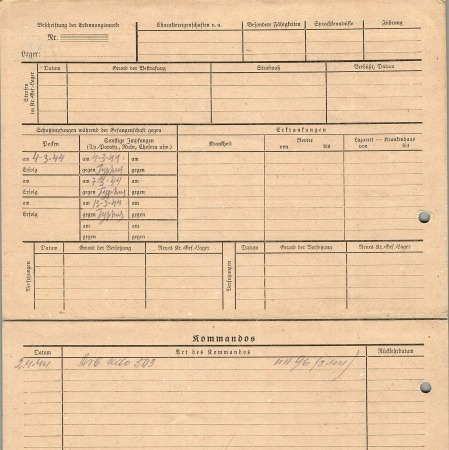 Beschriftung der Erkennungsmarke
Nr.
Lager:
Charaktereigenschaften u. a.
Besondere Fähigkeiten
Sprachkenntnisse
Führung
Strafen im Kr.-Gef.-Lager
Datum
Grund der Bestrafung
Strafmaß
Verbüßt, Datum
Schutzimpfungen während der Gefangenschaft gegen
Erkrankungen
Pocken
Sonstige Impfungen
(Ty.-Paraty., Ruhr, Cholera usw.)
Krankheit
Revier
von bis
Lazarett — Krankenhaus
von bis
am 4-3-44 am 4-3-44. am
Erfolg gegen Typhus gegen
am am 44 am
Erfolg gegen Typhus gegen
am am 13-3-44 am
Erfolg gegen Typhus gegen
am am
gegen gegen
am am
gegen gegen
Versetzungen
Datum
Grund der Versetzung
Neues Kr.-Gef.-Lager
Versetzungen
Datum
Grund der Versetzung
Neues Kr.-Gef.-Lager
Kommandos
Datum
Art des Kommandos
Rückkehrdatum
593